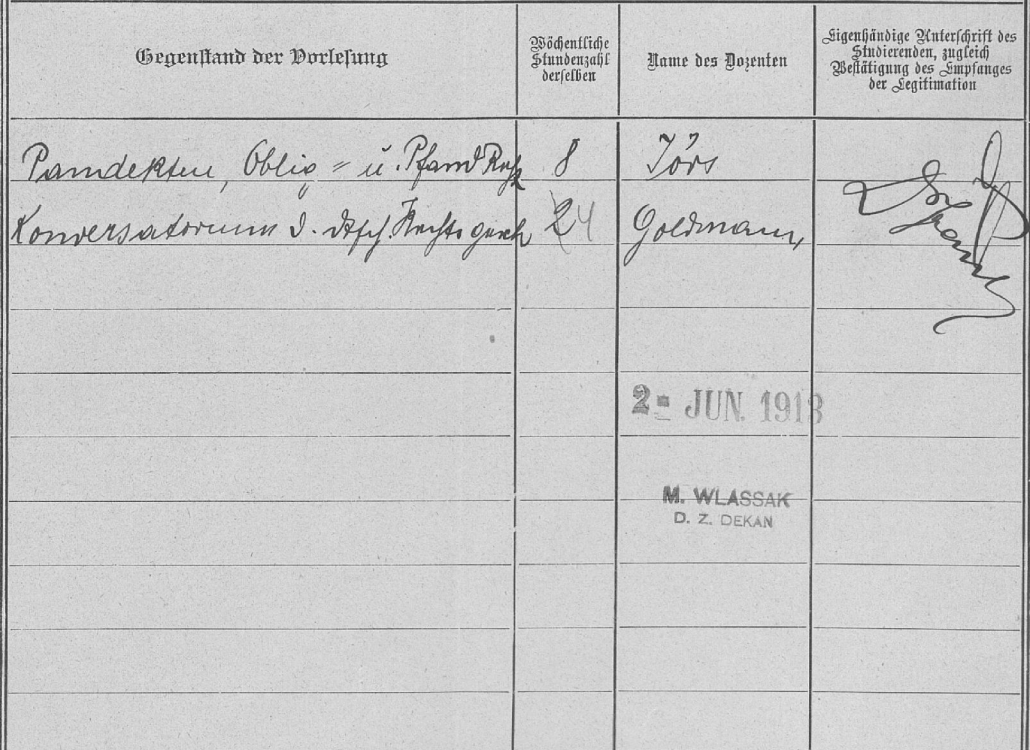 Gegenstand der Vorlesung
Wöchentliche
Stundenzahl
derselben
Name des Dozenten
Eigenhändige Unterschrift des
Studierenden, zugleich
Bestätigung des Empfanges
der Legitimation
Pandekten, Oblig = u. Pfand Recht 8 Jörs
Konversatorium d. dtsch. Rechtsgesch 2 4 Goldmann
2 - JUN. 1913
M. WLASSAK
D. Z. DEKAN